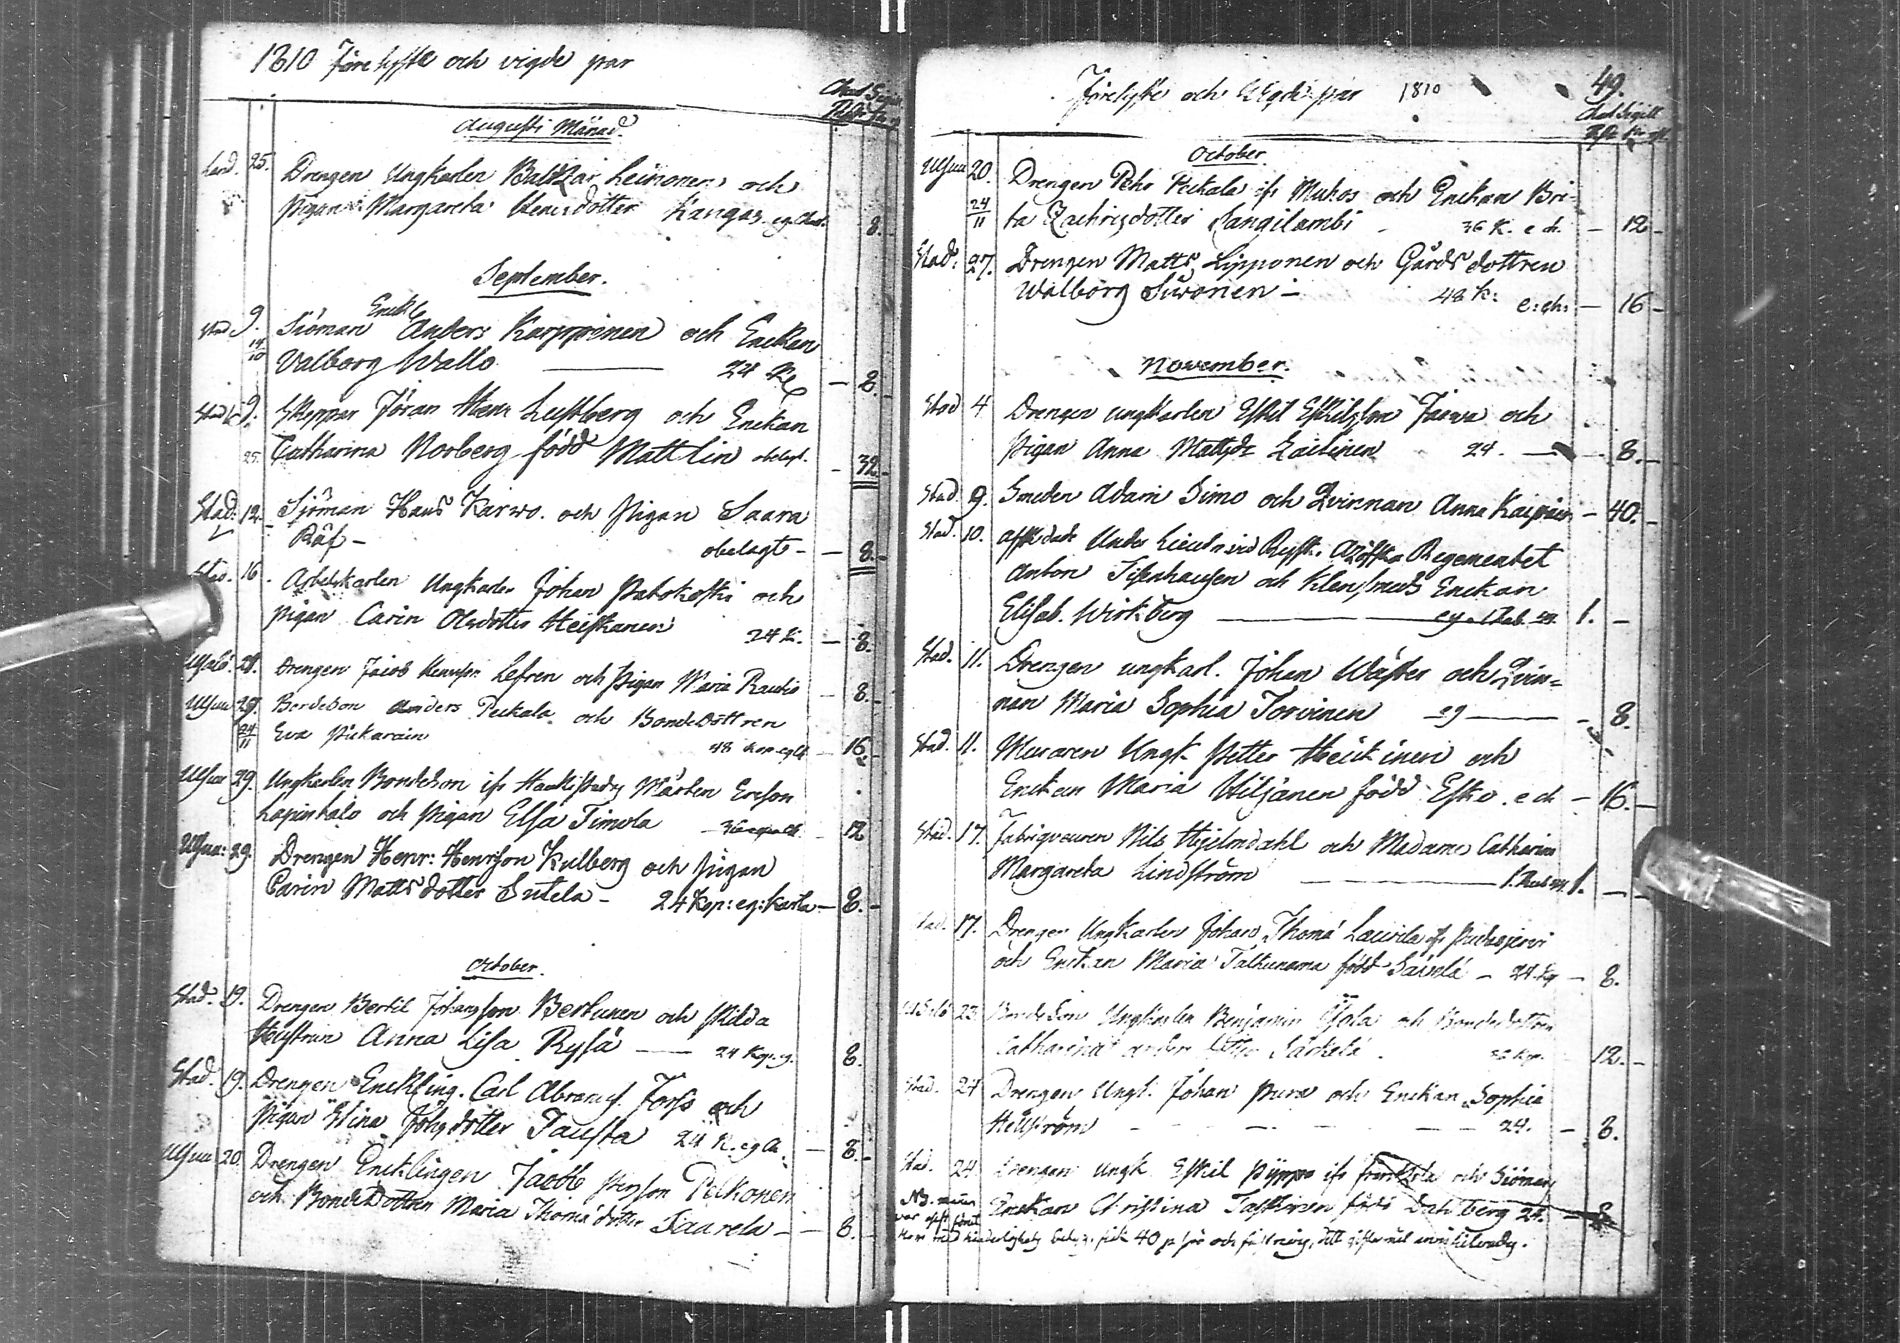 1810 Förelyste och vigde par
Augusti Månad.
Land. 25. Drengen Ungkarlen Baltzar Leinonen och
Pigan Margareta Henrsdotter Kangas 8.
September.
Stad 9. Siöman Enckl. Anders Karppinen och Enckan
14/10 Valborg Wallo 24 K 8.
Stad 9. Skeppar Jöran Henr Lustberg och Enckan
25. Catharina Norberg född Mattlin obelagt. 32
Stad. 12. Sjöman Hans Karwo. och Pigan Saara
Räf obelagt 8.
Stad. 16. Arbetskarlen Ungkarlen Johan Patokoski och
Pigan Carin Olsdotter Heiskanen 24 K. 8.
28. Drengen Jacob Henrsson Lefren och Pigan Maria Rautio 8.
Uhluu 29. Bondeson Anders Peckala och BondeDottren
24/11 Eva Pickarain 48 kop. 16
Uhluu 29. Ungkarlen Bondeson ifr Mårten Erson
Lapinkalo och Pigan Elsa Timola 12
Uhluu: 29. Drengen Henr: Henrsson Kulberg och Pigan
Carin Mattsdotter Sutela 24 Kop: eg: Karta 8.
October.
Stad. 19. Drengen Bertil Johansson Bertunen och skilda
Hustrun Anna Lisa Rysä 24 Kop. 8.
Stad. 19. Drengen Enckling. Carl Abrams. Torss och
Pigan Elina Johsdotter Tausta 24 K. eg. Ch. 8.
Uhluu 20. Drengen Encklingen Jacob Persson Pelkonen
och BondeDottren Maria Thomædotter Saarela 8.
Förelyste och Wigde par 1810 49.
October.
Uhluu 20. Drengen Pehr Peckala ifr Muhos och Enckan Bri-
24/11 ta Zachrisdotter Kangilambi 36 K. e ch. 12
Stad. 27. Drengen Matts Lipponen och Gårdsdottren
Walborg Suvonen 48 K: e: ch: 16
November.
Stad 4 Drengen ungkarlen Eskil Eskilsson Jarwa och
Pigan Anna Mattsdr Laitinen 24. 8.
Stad. 9. Smeden Adam Simo och Qvinnan Anna 40.
Stad. 10. Afskedade Under Lieutn. vid Rysk. Azofska Regementet
Anton Tisenhausen och Klensmeds Enckan
Elisab. Wirkberg 1.
Stad. 11. Drengen ungkarl. Johan Wäster och Qvin=
nan Maria Sophia Torvinen eg 8.
Stad. 11. Muraren Ungk. Petter Heickinen och
Enckan Maria Hiljanen född Esko. e ch 16.
Stad. 17. Fabriqueuren Nils Hejelmdahl och Madame Catharina
Margareta Lindström 1.
17. Drengen Ungkarlen Johan Thomæ Laurila ifr Pudasjervi
och Enckan Maria Talkunama född 24 Kop 8.
23. BondeSon Ungkarlen Benjamin och Bondedottren
Catharina Särkelä 12.
Stad. 24 Drengen Ungk. Johan Pura och Enckan Sophia
Hellström 24. 8.
Stad. 24. Drengen Ungk Eskil Pyppo ifr och Siömans
Enckan Christina Taskinen född Dahlberg 24. 8